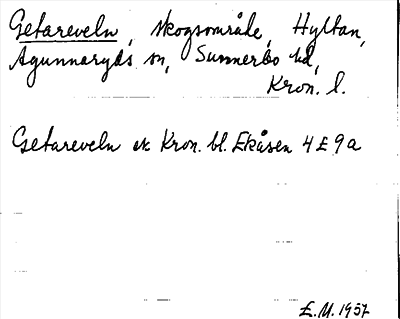 Getareveln, skogsområde, Hyltan,
Agunnaryds sn, Sunnerbo hd,
Kron. l.
Getareveln ek Kron. bl. Ekåsen 4 E 9 a
E.M. 1957